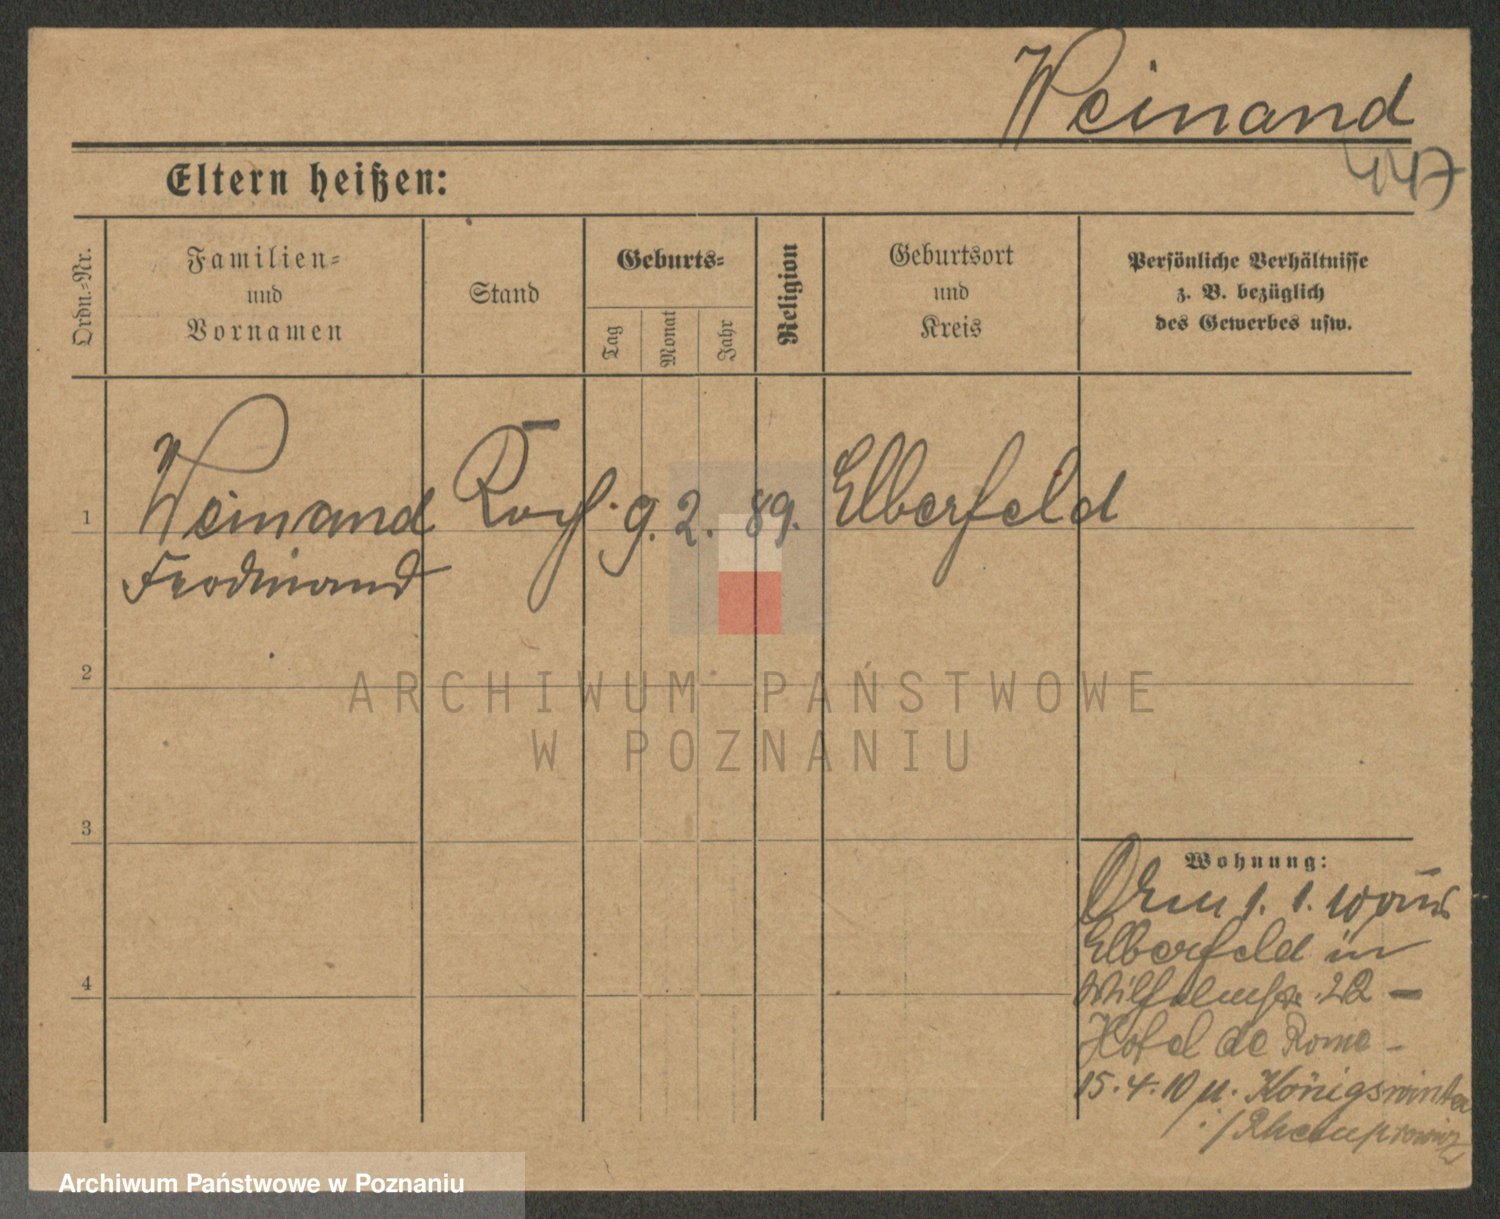 Weinand
447
Eltern heißen:
Ordn.-Nr.
Familien- und Vornamen
Stand
Geburts-
Tag
Monat
Jahr
Religion
Geburtsort und Kreis
Persönliche Verhältnisse
z. B. bezüglich
des Gewerbes usw.
1
Weinand Koch 9. 2. 89. Elberfeld
Ferdinand
2
ARCHIWUM PAŃSTWOWE
W POZNANIU
3
Wohnung:
1. 1. 10 aus
Elberfeld in
Wilhelmstr. 22 -
Hotel de Rome -
15. 4. 10 n. Königswinter
/Rheinprovinz
4
Archiwum Państwowe w Poznaniu